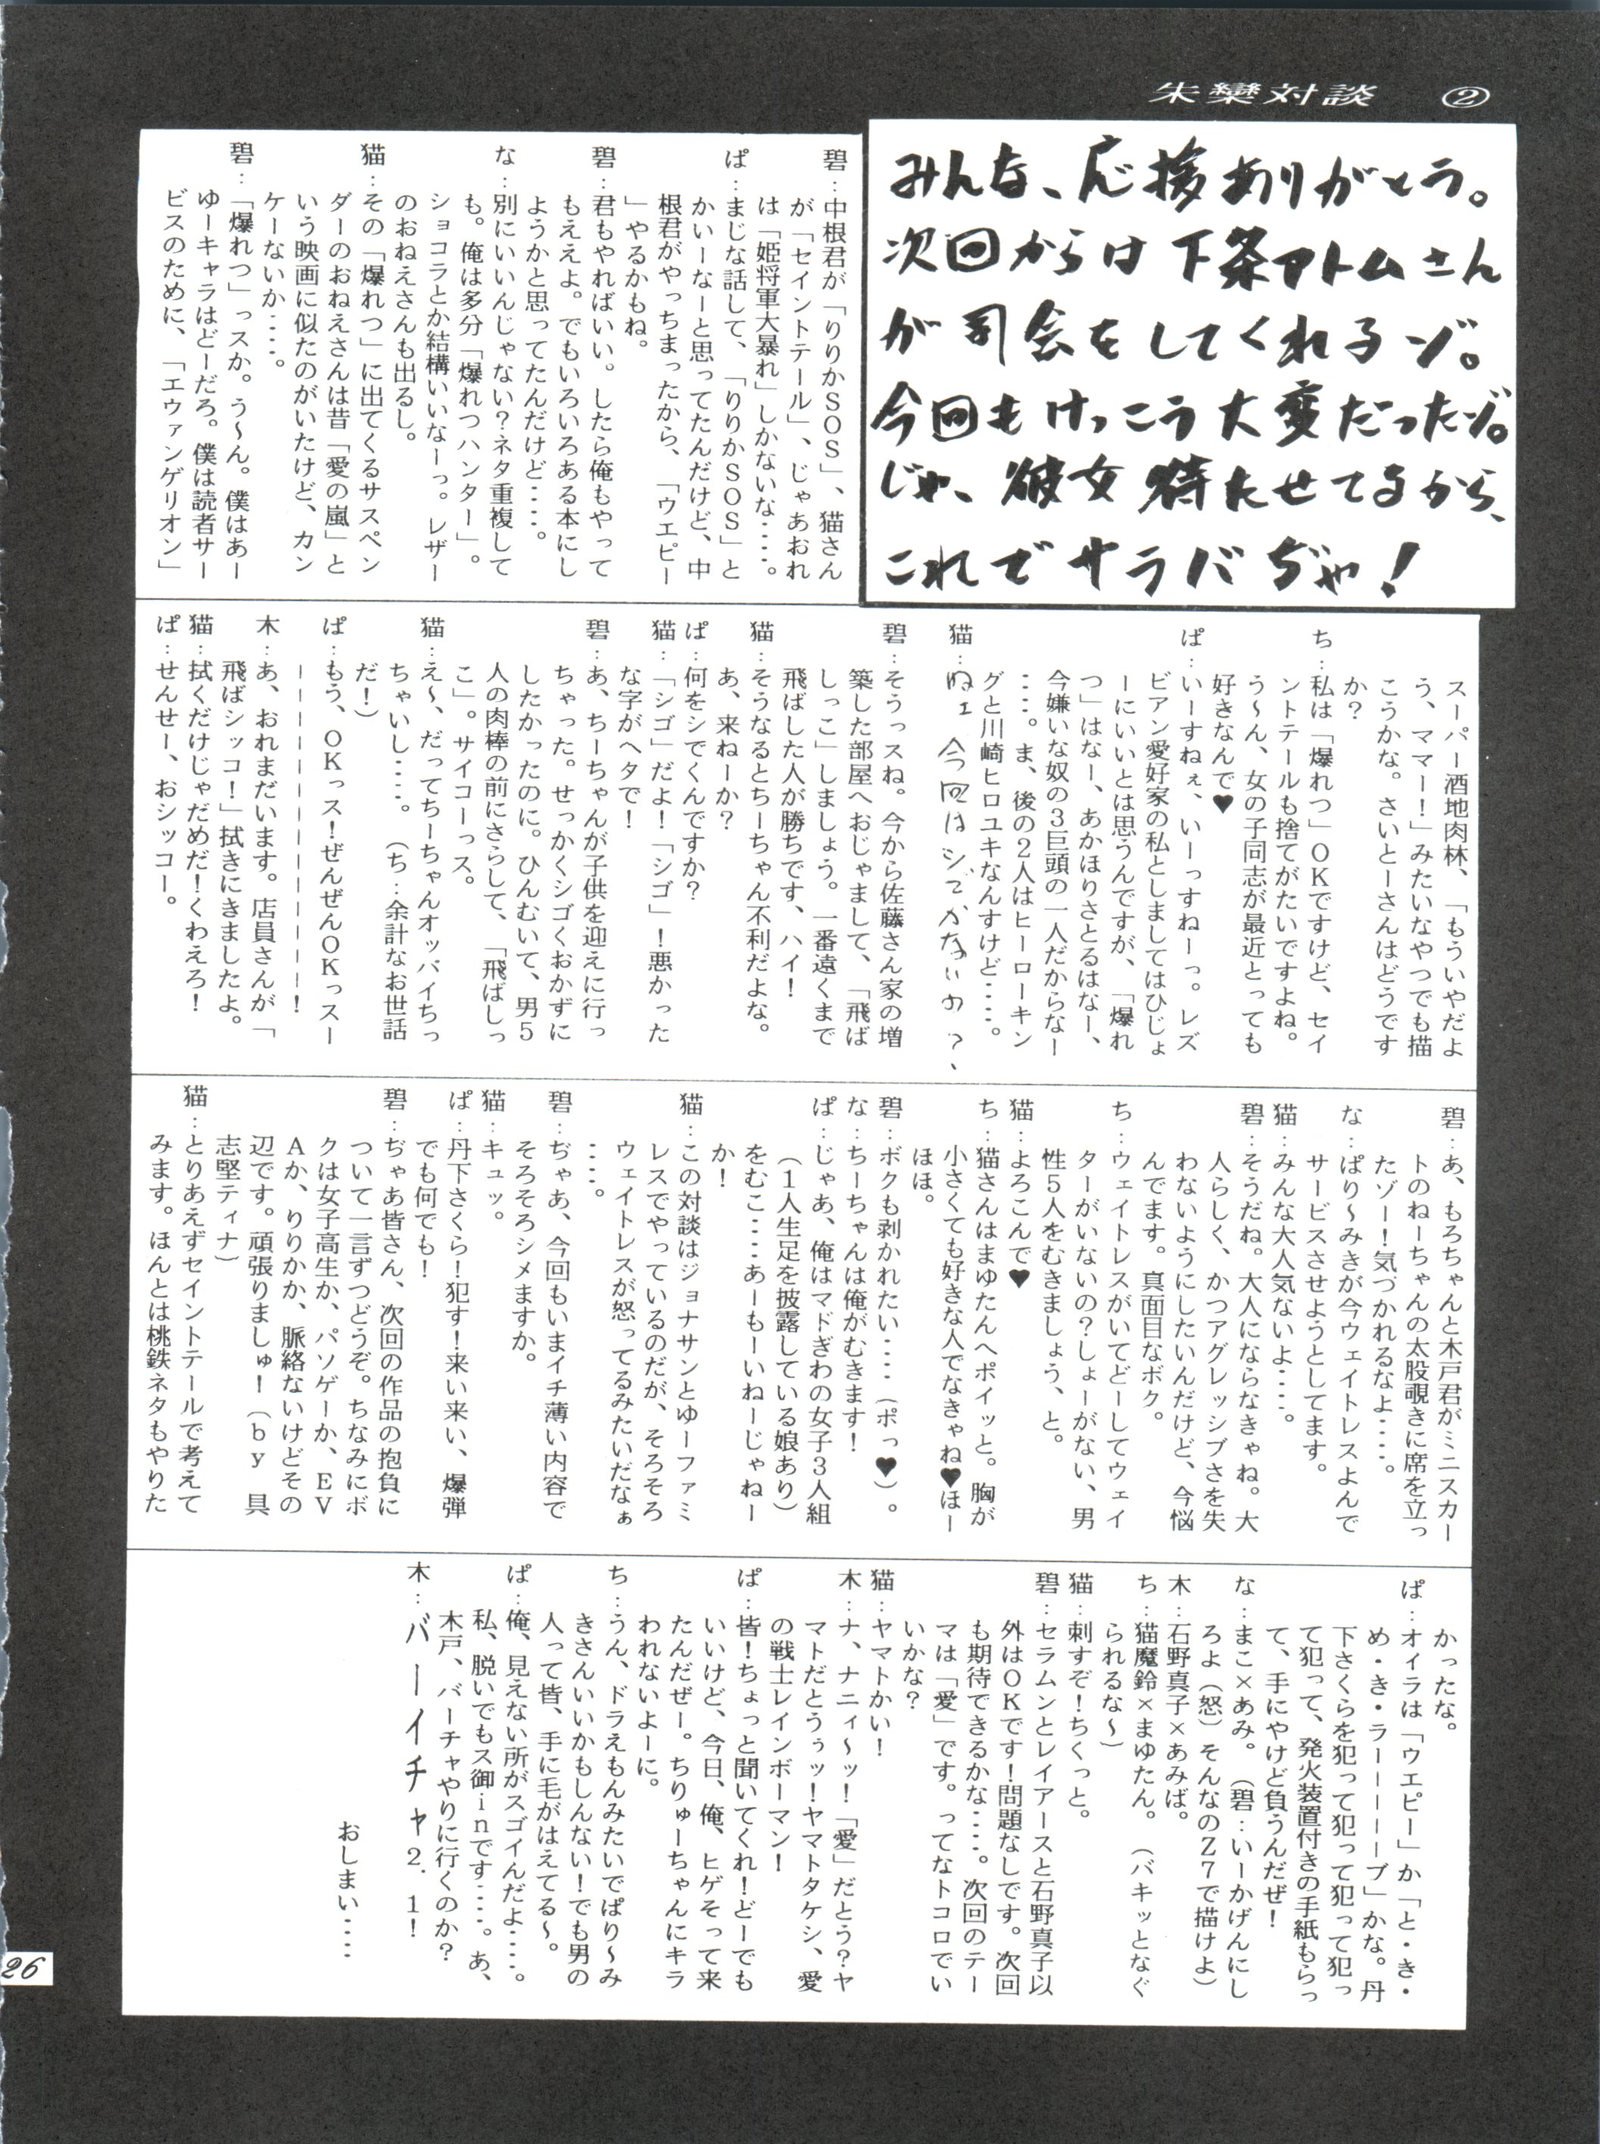 朱欒対談 ②
みんな、応援ありがとう。
次回からは下条アトムさん
が司会をしてくれるゾ。
今回もけっこう大変だったゾ。
じゃ、彼女待たせてるから、
これでサラバぢゃ!
碧:中根君が「りりかSOS」、猫さん
が「セイントテール」、じゃあおれ
は「姫将軍大暴れ」しかないな‥‥。
ぱ:まじな話して、「りりかSOS」と
かいーなーと思ってたんだけど、中
根君がやっちまったから、「ウエピー
」やるかもね。
碧:君もやればいい。したら俺もやって
もええよ。でもいろいろある本にし
ようかと思ってたんだけど‥‥。
な:別にいいんじゃない?ネタ重複して
も。俺は多分「爆れつハンター」。
ショコラとか結構いいなーっ。レザー
のおねえさんも出るし。
猫:その「爆れつ」に出てくるサスペン
ダーのおねえさんは昔「愛の嵐」と
いう映画に似たのがいたけど、カン
ケーないか‥‥。
碧:「爆れつ」っスか。う~ん。僕はあー
ゆーキャラはどーだろ。僕は読者サー
ビスのために、「エヴァンゲリオン」
スーパー酒地肉林、「もういやだよ
う、ママー!」みたいなやつでも描
こうかな。さいとーさんはどうです
か?
ち:私は「爆れつ」OKですけど、セイ
ントテールも捨てがたいですよね。
う~ん、女の子同志が最近とっても
好きなんで♥
ぱ:いーすねぇ、いーっすねーっ。レズ
ビアン愛好家の私としましてはひじょ
ーにいいとは思うんですが、「爆れ
つ」はなー、あかほりさとるはなー、
今嫌いな奴の3巨頭の一人だからなー
‥‥。ま、後の2人はヒーローキン
グと川崎ヒロユキなんすけど‥‥。
猫:ねェ今回はシゴかないの?、
碧:そうっスね。今から佐藤さん家の増
築した部屋へおじゃまして、「飛ば
しっこ」しましょう。一番遠くまで
飛ばした人が勝ちです、ハイ!
猫:そうなるとちーちゃん不利だよな。
あ、来ねーか?
ぱ:何をシでくんですか?
猫:「シゴ」だよ!「シゴ」!悪かった
な字がヘタで!
碧:あ、ちーちゃんが子供を迎えに行っ
ちゃった。せっかくシゴくおかずに
したかったのに。ひんむいて、男5
人の肉棒の前にさらして、「飛ばしっ
こ」。サイコーっス。
猫:え~、だってちーちゃんオッパイちっ
ちゃいし‥‥。(ち:余計なお世話
だ!)
ぱ:もう、OKっス!ぜんぜんOKっスー
ーーーーーーーーーーーー!
木:あ、おれまだいます。店員さんが「
飛ばシッコ!」拭きにきましたよ。
猫:拭くだけじゃだめだ!くわえろ!
ぱ:せんせー、おシッコー。
碧:あ、もろちゃんと木戸君がミニスカー
トのねーちゃんの太股覗きに席を立っ
たゾー!気づかれるなよ‥‥。
な:ぱり~みきが今ウェイトレスよんで
サービスさせようとしてます。
猫:みんな大人気ないよ‥‥。
碧:そうだね。大人にならなきゃね。大
人らしく、かつアグレッシブさを失
わないようにしたいんだけど、今悩
んでます。真面目なボク。
ち:ウェイトレスがいてどーしてウェイ
ターがいないの?しょーがない、男
性5人をむきましょう、と。
猫:よろこんで♥
ち:猫さんはまゆたんへポイッと。胸が
小さくても好きな人でなきゃね♥ほー
ほほ。
碧:ボクも剥かれたい‥‥(ポっ♥)。
な:ちーちゃんは俺がむきます!
ぱ:じゃあ、俺はマドぎわの女子3人組
(1人生足を披露している娘あり)
をむこ‥‥あーもーいねーじゃねー
か!
猫:この対談はジョナサンとゆーファミ
レスでやっているのだが、そろそろ
ウェイトレスが怒ってるみたいだなぁ
‥‥。
碧:ぢゃあ、今回もいまイチ薄い内容で
そろそろシメますか。
猫:キュッ。
ぱ:丹下さくら!犯す!来い来い、爆弾
でも何でも!
碧:ぢゃあ皆さん、次回の作品の抱負に
ついて一言ずつどうぞ。ちなみにボ
クは女子高生か、パソゲーか、EV
Aか、りりかか、脈絡ないけどその
辺です。頑張りましゅ!(by 具
志堅ティナ)
猫:とりあえずセイントテールで考えて
みます。ほんとは桃鉄ネタもやりた
かったな。
ぱ:オイラは「ウエピー」か「と・き・
め・き・ラーーーーブ」かな。丹
下さくらを犯って犯って犯って犯っ
て犯って、発火装置付きの手紙もらっ
て、手にやけど負うんだぜ!
な:まこ×あみ。(碧:いーかげんにし
ろよ(怒)そんなのZ7で描けよ)
木:石野真子×あみば。
ち:猫魔鈴×まゆたん。(バキッとなぐ
られるな~)
猫:刺すぞ!ちくっと。
碧:セラムンとレイアースと石野真子以
外はOKです!問題なしです。次回
も期待できるかな‥‥。次回のテー
マは「愛」です。ってなトコロでい
いかな?
猫:ヤマトかい!
木:ナ、ナニィ~ッ!「愛」だとう?ヤ
マトだとうぅッ!ヤマトタケシ、愛
の戦士レインボーマン!
ぱ:皆!ちょっと聞いてくれ!どーでも
いいけど、今日、俺、ヒゲそって来
たんだぜー。ちりゅーちゃんにキラ
われないよーに。
ち:うん、ドラえもんみたいでぱり~み
きさんいいかもしんない!でも男の
人って皆、手に毛がはえてる~。
ぱ:俺、見えない所がスゴイんだよ‥‥。
私、脱いでもス御inです‥‥。あ、
木戸、バーチャやりに行くのか?
木:バーイチャ2.1!
おしまい‥‥
26